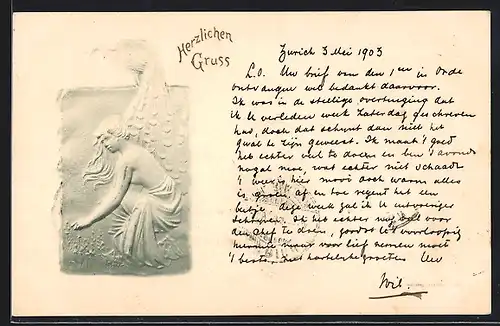 Herzlichen
Gruss
Zurich 3 Mei 1903
L.O. Uw brief van den 1en in orde
ontvangen wel bedankt daarvoor.
Ik was in de stellige overtuiging dat
ik U verleden week Zaterdag geschreven
had, doch dat schynt dan niet het
geval te zijn geweest. Ik maak 't goed
heb echter veel te doen en ben 's avonds
nogal moe, wat echter niet schaadt
't weer is hier mooi doch warm alles
is groen, af en toe regent het een
beetje, deze week zal ik U uitvoeriger
schryven. Ik heb echter nog veel voor
den chef te doen, zoodat U voorloopig
hiermee maar voor lief nemen moet
't beste, met hartelyke groeten Uw
Wil.